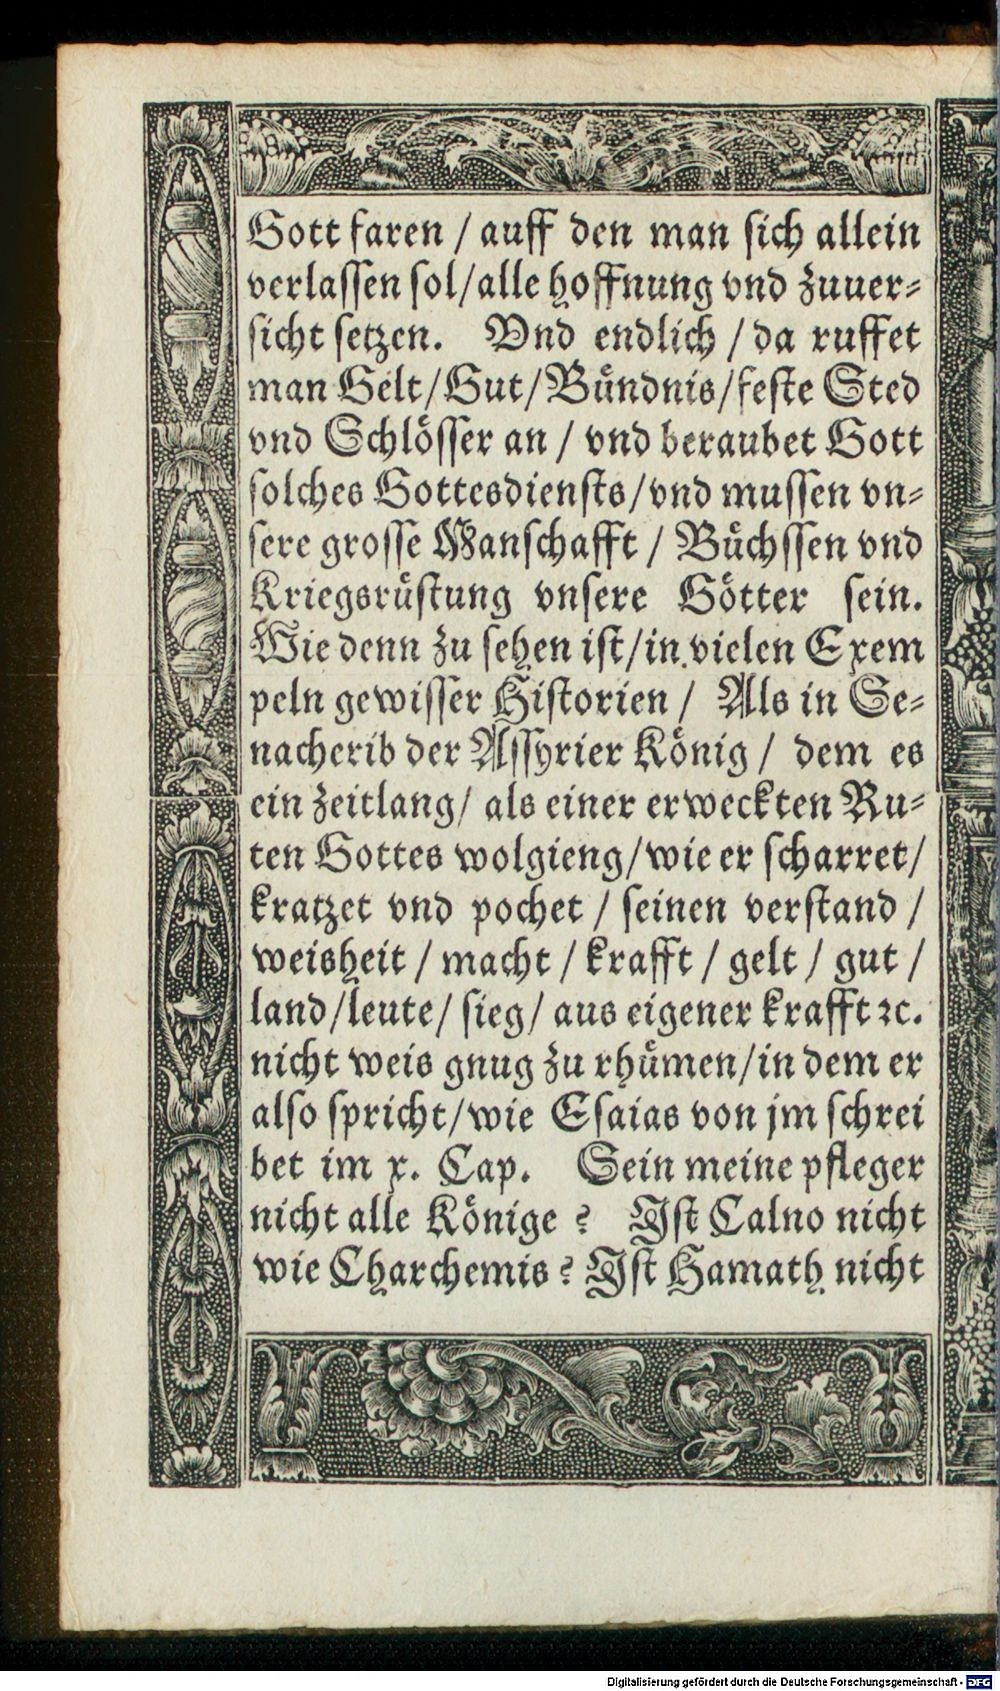 Gott faren / auff den man sich allein
verlassen sol/alle hoffnung vnd zuuer⸗
sicht setzen. Vnd endlich / da ruffet
man Gelt/Gut/Bündnis/feste Sted
vnd Schlösser an / vnd beraubet Gott
solches Gottesdiensts/vnd mussen vn⸗
sere grosse Manschafft / Büchssen vnd
Kriegsrüstung vnsere Götter sein.
Wie denn zu sehen ist/in vielen Exem
peln gewisser Historien / Als in Se⸗
nacherib der Assyrier König / dem es
ein zeitlang/ als einer erweckten Ru⸗
ten Gottes wolgieng/wie er scharret/
kratzet vnd pochet / seinen verstand /
weisheit / macht / krafft / gelt / gut /
land/leute/ sieg/ aus eigener krafft ꝛc.
nicht weis gnug zu rhümen/in dem er
also spricht/wie Esaias von jm schrei
bet im x. Cap. Sein meine pfleger
nicht alle Könige ? Ist Calno nicht
wie Charchemis ? Ist Hamath nicht
Digitalisierung gefördert durch die Deutsche Forschungsgemeinschaft - DFG